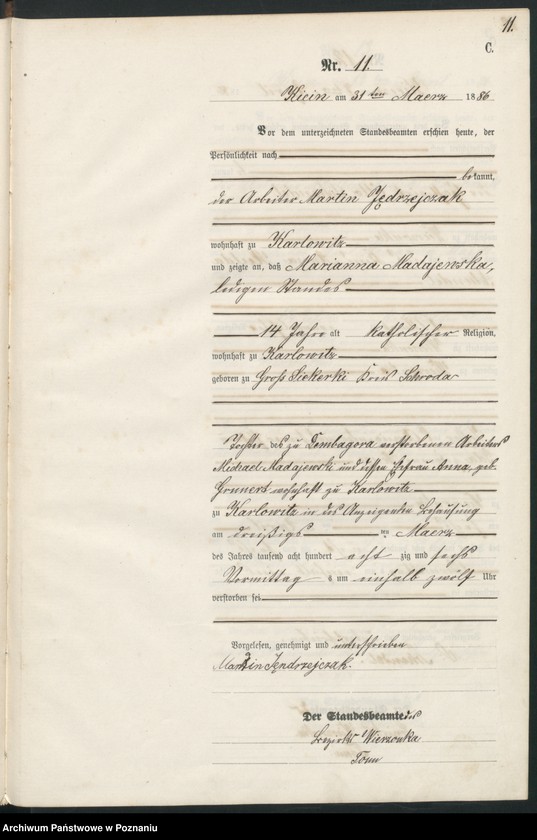 11.
C.
Nr. 11.
Kicin am 31 ten Maerz 1886
Vor dem unterzeichneten Standesbeamten erschien heute, der
Persönlichkeit nach
bekannt,
der Arbeiter Martin Jędrzejczak
wohnhaft zu Karlowitz
und zeigte an, daß Marianna Madajewska,
ledigen Standes
14 Jahre alt katholischer Religion,
wohnhaft zu Karlowitz
geboren zu Groß Siekierki Kreis Schroda
Tochter des zu Dembagora verstorbenen Arbeiters
Michael Madajewski und dessen Ehefrau Anna, geb.
Grunert wohnhaft zu Karlowitz
zu Karlowitz in des Anzeigenden Behausung
am dreißigs ten Maerz
des Jahres tausend acht hundert acht zig und sechs
Vormittag s um einhalb zwölf Uhr
verstorben sei
Vorgelesen, genehmigt und unterschrieben
Martin Jendrzejczak.
Der Standesbeamte des
Bezirks Wierzonka
Archiwum Państwowe w Poznaniu